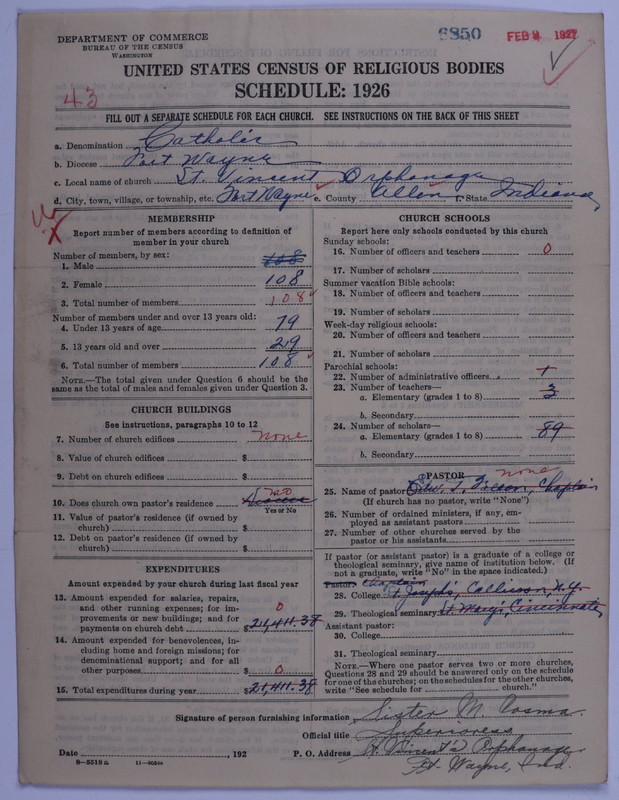 DEPARTMENT OF COMMERCE
BUREAU OF THE CENSUS
WASHINGTON
6850 FEB 1927
UNITED STATES CENSUS OF RELIGIOUS BODIES
43
SCHEDULE: 1926
FILL OUT A SEPARATE SCHEDULE FOR EACH CHURCH. SEE INSTRUCTIONS ON THE BACK OF THIS SHEET
a. Denomination Catholic
b. Diocese Fort Wayne
c. Local name of church St. Vincent Orphanage
d. City, town, village, or township, etc. Fort Wayne e. County Allen f. State Indiana
MEMBERSHIP
Report number of members according to definition of
member in your church
Number of members, by sex:
1. Male 108
2. Female 108
3. Total number of members 108
Number of members under and over 13 years old:
4. Under 13 years of age 79
5. 13 years old and over 29
6. Total number of members 108
NOTE.—The total given under Question 6 should be the
same as the total of males and females given under Question 3.
CHURCH BUILDINGS
See instructions, paragraphs 10 to 12
7. Number of church edifices none
8. Value of church edifices $
9. Debt on church edifices $
10. Does church own pastor's residence no
Yes or No
11. Value of pastor's residence (if owned by
church) $
12. Debt on pastor's residence (if owned by
church) $
EXPENDITURES
Amount expended by your church during last fiscal year
13. Amount expended for salaries, repairs,
and other running expenses; for im-
provements or new buildings; and for
payments on church debt $ 21,411.38 0
14. Amount expended for benevolences, in-
cluding home and foreign missions; for
denominational support; and for all
other purposes $ 0
15. Total expenditures during year $ 21,411.38
CHURCH SCHOOLS
Report here only schools conducted by this church
Sunday schools:
16. Number of officers and teachers 0
17. Number of scholars
Summer vacation Bible schools:
18. Number of officers and teachers
19. Number of scholars
Week-day religious schools:
20. Number of officers and teachers
21. Number of scholars
Parochial schools:
22. Number of administrative officers 1
23. Number of teachers—
a. Elementary (grades 1 to 8) 3
b. Secondary
24. Number of scholars—
a. Elementary (grades 1 to 8) 89
b. Secondary
PASTOR none
25. Name of pastor Chaplain
(If church has no pastor, write "None")
26. Number of ordained ministers, if any, em-
ployed as assistant pastors
27. Number of other churches served by the
pastor or his assistants
If pastor (or assistant pastor) is a graduate of a college or
theological seminary, give name of institution below. (If
not a graduate, write "No" in the space indicated.)
Pastor: Chaplain
28. College St. Joseph's,
29. Theological seminary St. Mary's, Cincinnati
Assistant pastor:
30. College
31. Theological seminary
NOTE.—Where one pastor serves two or more churches,
Questions 28 and 29 should be answered only on the schedule
for one of the churches; on the schedules for the other churches,
write "See schedule for church."
Signature of person furnishing information Sister M. Cosma.
Official title Superioress
Date , 192 P. O. Address St. Vincent's Orphanage
Ft. Wayne, Ind.
8—5518a 11—